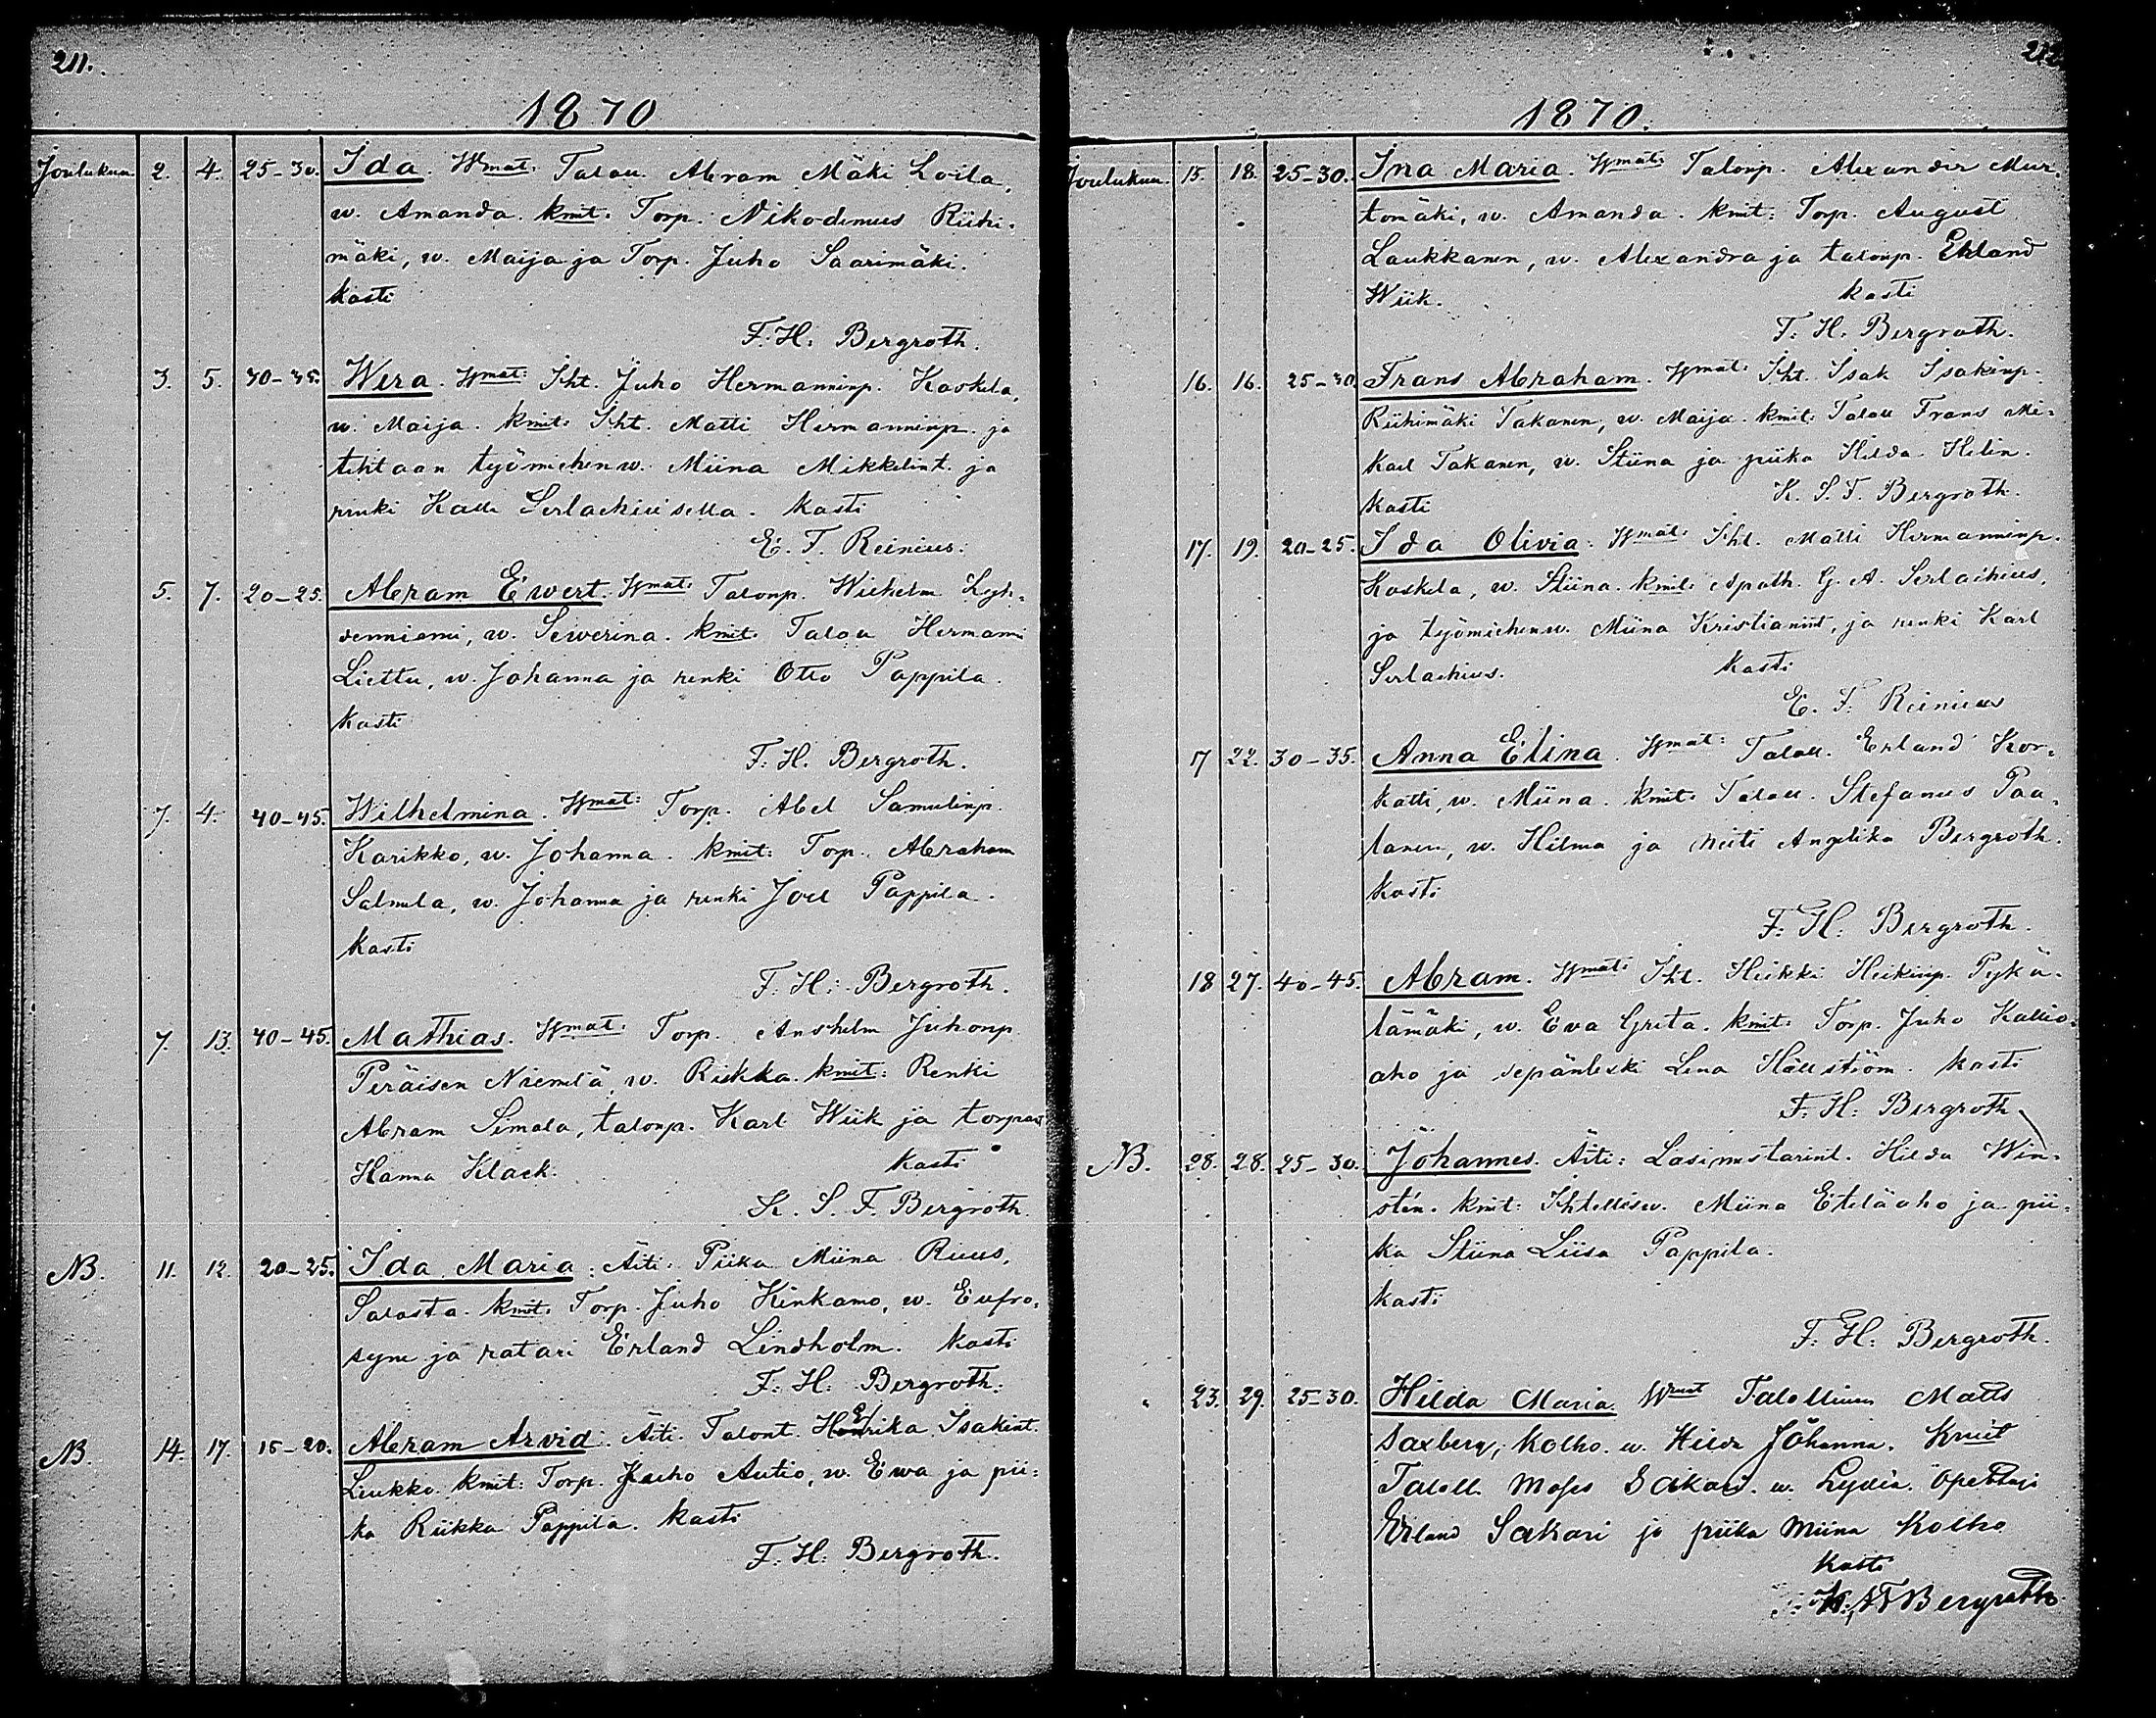 211.
1870
Joulukun 2. 4. 25-30. Ida. Wmat: Talou. Abram Mäki Loila,
w. Amanda. kmit: Torp. Nikodemus Riihi-
mäki, w. Maija ja Torp. Juho Saarimäki.
Kasti
F. H. Bergroth.
3. 5. 30-35. Wera. Wmat: Iht. Juho Hermanninp. Koskela,
w. Maija. kmit: Iht. Matti Hermanninp. ja
tehtaan työmiehen w. Miina Mikkelint. ja
renki Kalle Serlachiuksella. Kasti
E. F. Reinius.
5. 7. 20-25. Abram Ewert. Wmat: Talonp. Wilhelm Lyh-
denniemi, w. Sewerina. kmit. Talou Hermanni
Liettu, w. Johanna ja renki Otto Pappila.
Kasti
F. H. Bergroth.
7. 4. 40-45. Wilhelmina. Wmat: Torp. Abel Samulinp.
Karikko, w. Johanna. kmit: Torp. Abraham
Salmela, w. Johanna ja renki Joel Pappila.
Kasti
F. H. Bergroth.
7. 13. 40-45. Mathias. Wmat: Torp. Anshelm Juhonp.
Peräisen Niemelä, w. Riikka. kmit: Renki
Abram Simola, talonp. Karl Wiik ja torpan
Hanna Klack. Kasti
K. S. F. Bergroth.
NB. 11. 12. 20-25. Ida Maria. Äiti: Piika Miina Ruus,
Salosta. kmit: Torp. Juho Kinkamo, w. Eufro-
syne ja ratari Erland Lindholm. Kasti
F. H. Bergroth.
NB. 14. 17. 15-20. Abram Arvid. Äiti. Talont. Henrika Isakint.
Liukko. kmit: Torp. Juho Autio, w. Ewa ja pii-
ka Riikka Pappila. Kasti
F. H. Bergroth.
212
1870.
Joulukun 15. 18. 25-30. Ina Maria. Wmat: Talonp. Alexander Mur-
tomäki, w. Amanda. kmit: Torp. August
Laukkanen, w. Alexandra ja talonp. Erland
Wiik. Kasti
F. H. Bergroth.
16. 16. 25-30. Frans Abraham. Wmat: Iht. Isak Isakinp.
Riihimäki Takanen, w. Maija. kmit. Talou Frans Mi-
kael Takanen, w. Stiina ja piika Hilda Helin.
Kasti K. S. F. Bergroth.
17. 19. 20-25. Ida Olivia. Wmat: Iht. Matti Hermanninp.
Koskela, w. Stiina. kmit: Apoth. G. A. Serlachius,
ja työmiehen w. Miina Kristianint, ja renki Karl
Serlachius. Kasti
E. F. Reinius
17 22. 30-35. Anna Elina. Wmat: Talou. Erland Kor-
katti, w. Miina. kmit: Talou. Stefanus Paa-
lanen, w. Hilma ja neiti Angelika Bergroth.
Kasti
F. H. Bergroth.
18 27. 40-45. Abram. Wmat: Iht. Heikki Heikinp. Pykä-
lämäki, w. Eva Greta. kmit: Torp. Juho Kallio-
aho ja sepänleski Lena Hällström. Kasti
F. H. Bergroth
NB. 28. 28. 25-30. Johannes. Äiti: Lasimestarint. Hilda Win-
stén. kmit: Ihtellisw. Miina Eteläaho ja pii-
ka Stiina Liisa Pappila.
Kasti
F. H. Bergroth.
23. 29. 25-30. Hilda Maria. Wmat Talollinen Matts
Saxberg, Kolho. w. Hilda Johanna. Kmit
Taloll. Moses Sakari. w. Lydia. Opettaja
Erland Sakari ja piika Miina Kolho
Kasti
K. S. F Bergroth